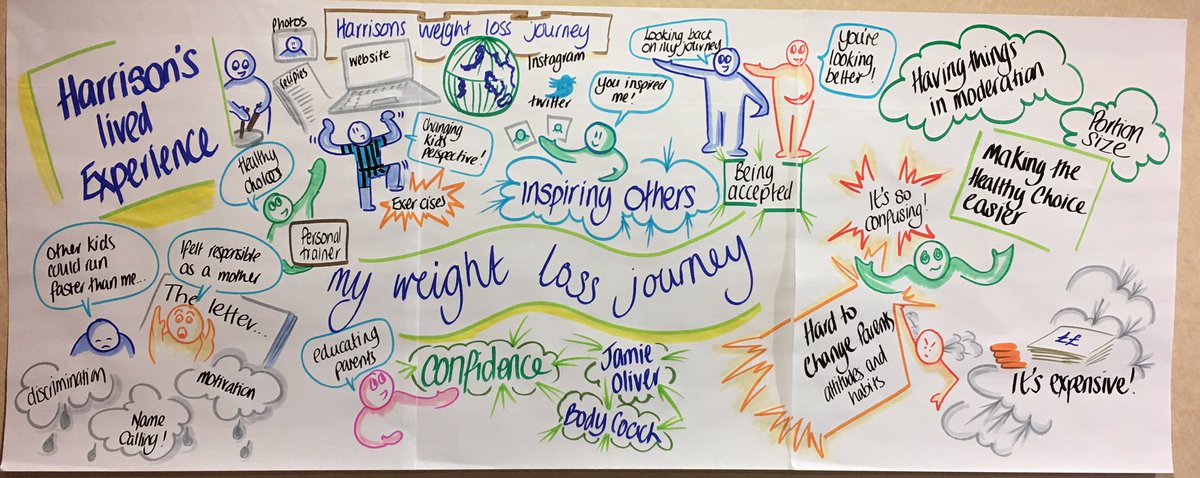 Harrison's
lived
Experience
photos
recipies
website
Harrisons weight loss journey
Instagram
twitter
Looking back
on my journey
You're
looking
better!
Having things
in moderation
Portion
size
Making the
Healthy Choice
easier
Healthy
choices
Changing
kids
perspective!
Exercises
You inspired
me!
Inspiring others
Being
accepted
It's so
confusing!
Personal
trainer
Other kids
could run
faster than me...
I felt responsible
as a mother
The letter...
discrimination
Name
calling!
motivation
my weight loss journey
educating
parents
Confidence
Jamie
Oliver
Body Coach
Hard to
Change Parents
attitudes and
habits
££
It's expensive!